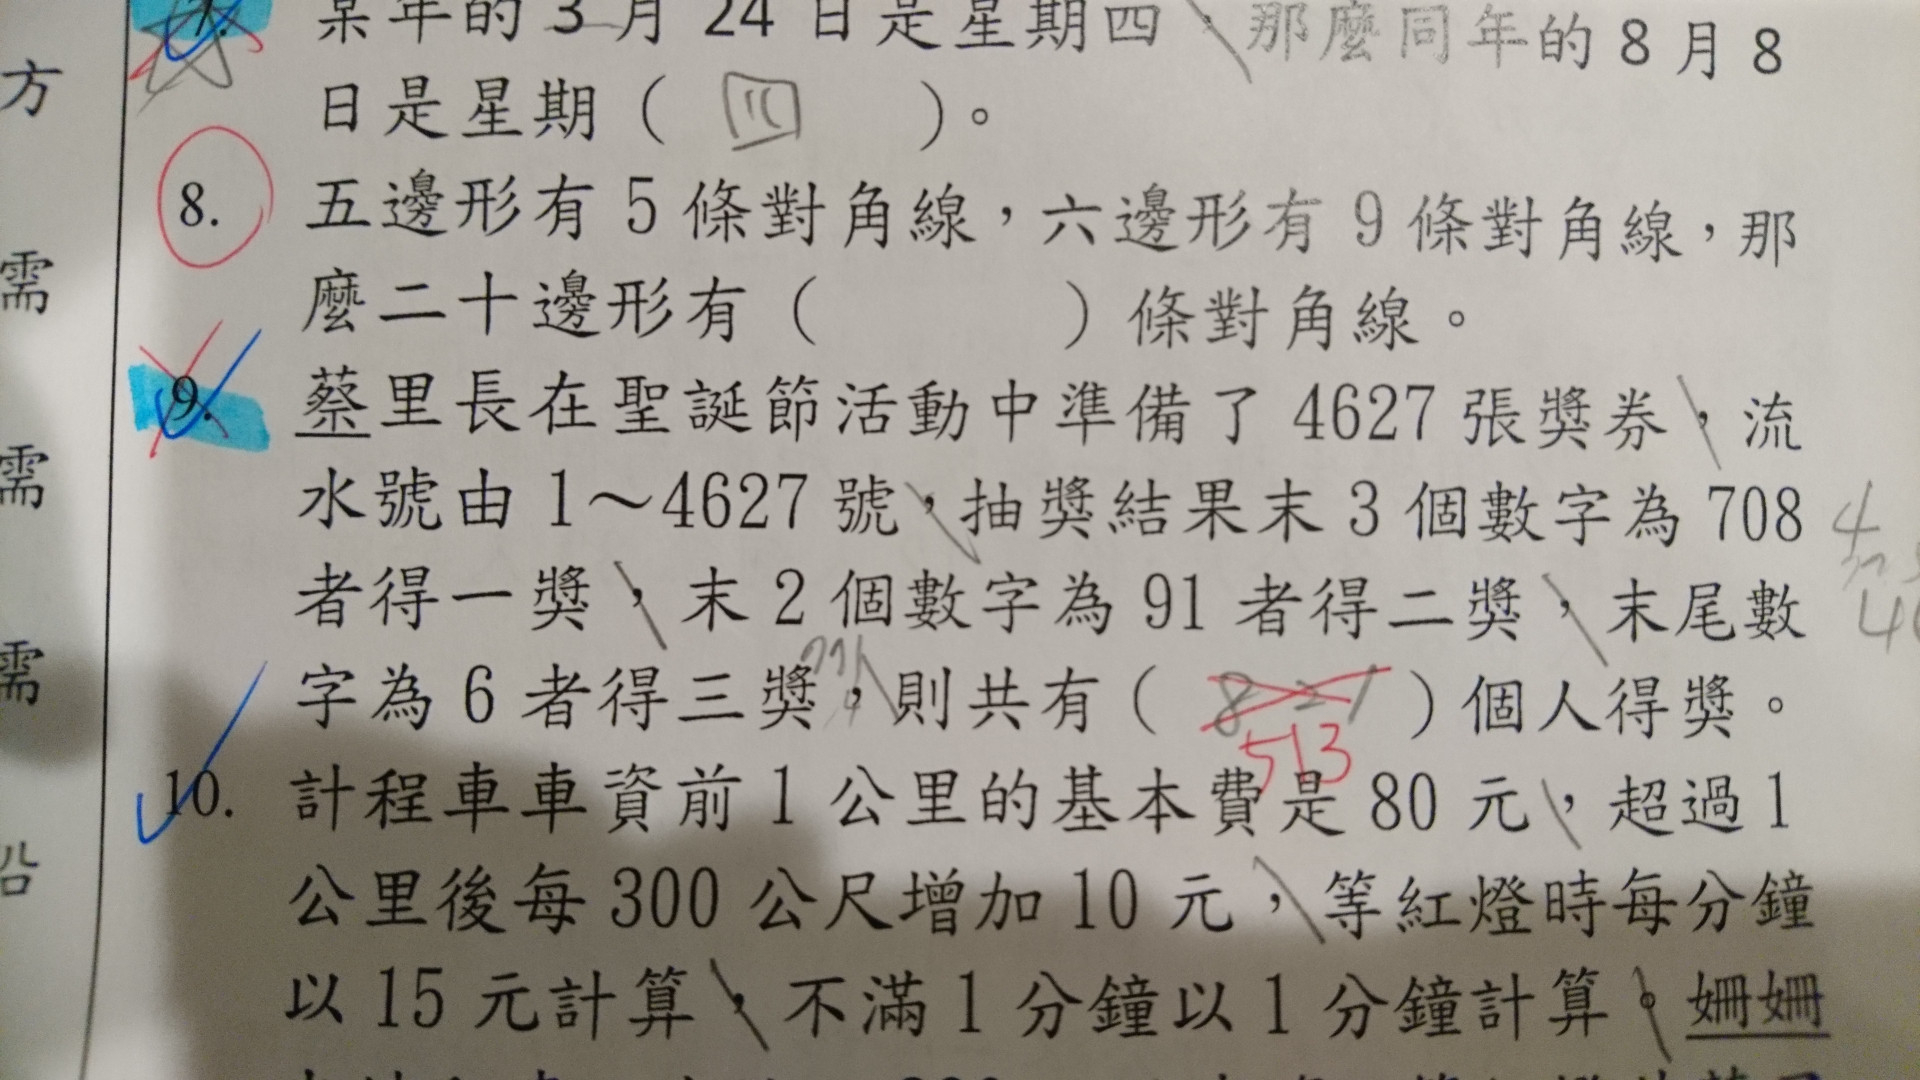 7. 某年的 3 月 24 日是星期四，那麼同年的 8 月 8
日是星期（ 四 ）。
8. 五邊形有 5 條對角線，六邊形有 9 條對角線，那
麼二十邊形有（ ）條對角線。
9. 蔡里長在聖誕節活動中準備了 4627 張獎券，流
水號由 1～4627 號，抽獎結果末 3 個數字為 708
者得一獎，末 2 個數字為 91 者得二獎，末尾數
字為 6 者得三獎，則共有（ 821 ）個人得獎。
513
10. 計程車車資前 1 公里的基本費是 80 元，超過 1
公里後每 300 公尺增加 10 元，等紅燈時每分鐘
以 15 元計算，不滿 1 分鐘以 1 分鐘計算。姍姍
方
需
需
需
沿